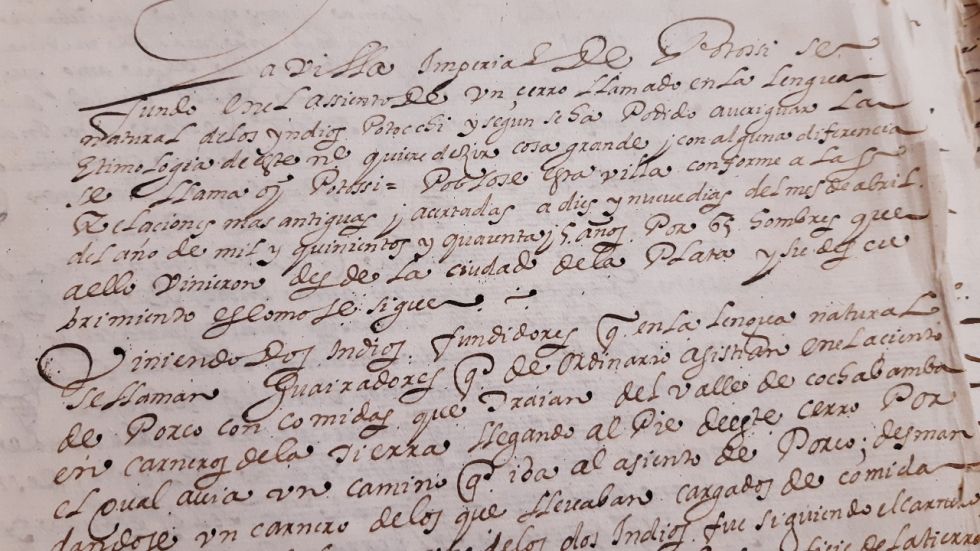 La villa Imperial De Potossi se
fundo en el assiento De vn çerro llamado en la Lengua
natural de los yndios Potocchi y segun se ha Podido averiguar La
Etimologia de este ne quiere dezir cosa grande y con alguna diferencia
se llama oy Potossi = Poblose esta villa conforme a las
Relaciones mas antiguas y acertadas a dies y nueve dias del mes de abril
del año de mil y quinientos y quarenta y 5 años Por 65 hombres que
a ello vinieron desde La ciudad de la Plata y su descu
brimiento es como se sigue
Viniendo Dos Indios fundidores q en la Lengua natural
se llaman Guairadores q de ordinario asistian en el aciento
de Porco con comidas que Traian del valle de cochabamba
en carneros de la Tierra llegando al Pie deeste cerro Por
el qual avia vn camino q iba al asiento de Porco; desman
dandose vn carnero de los que llevaban cargados de comida
de los dos Indios fue siguiendo el carne
de la tierra